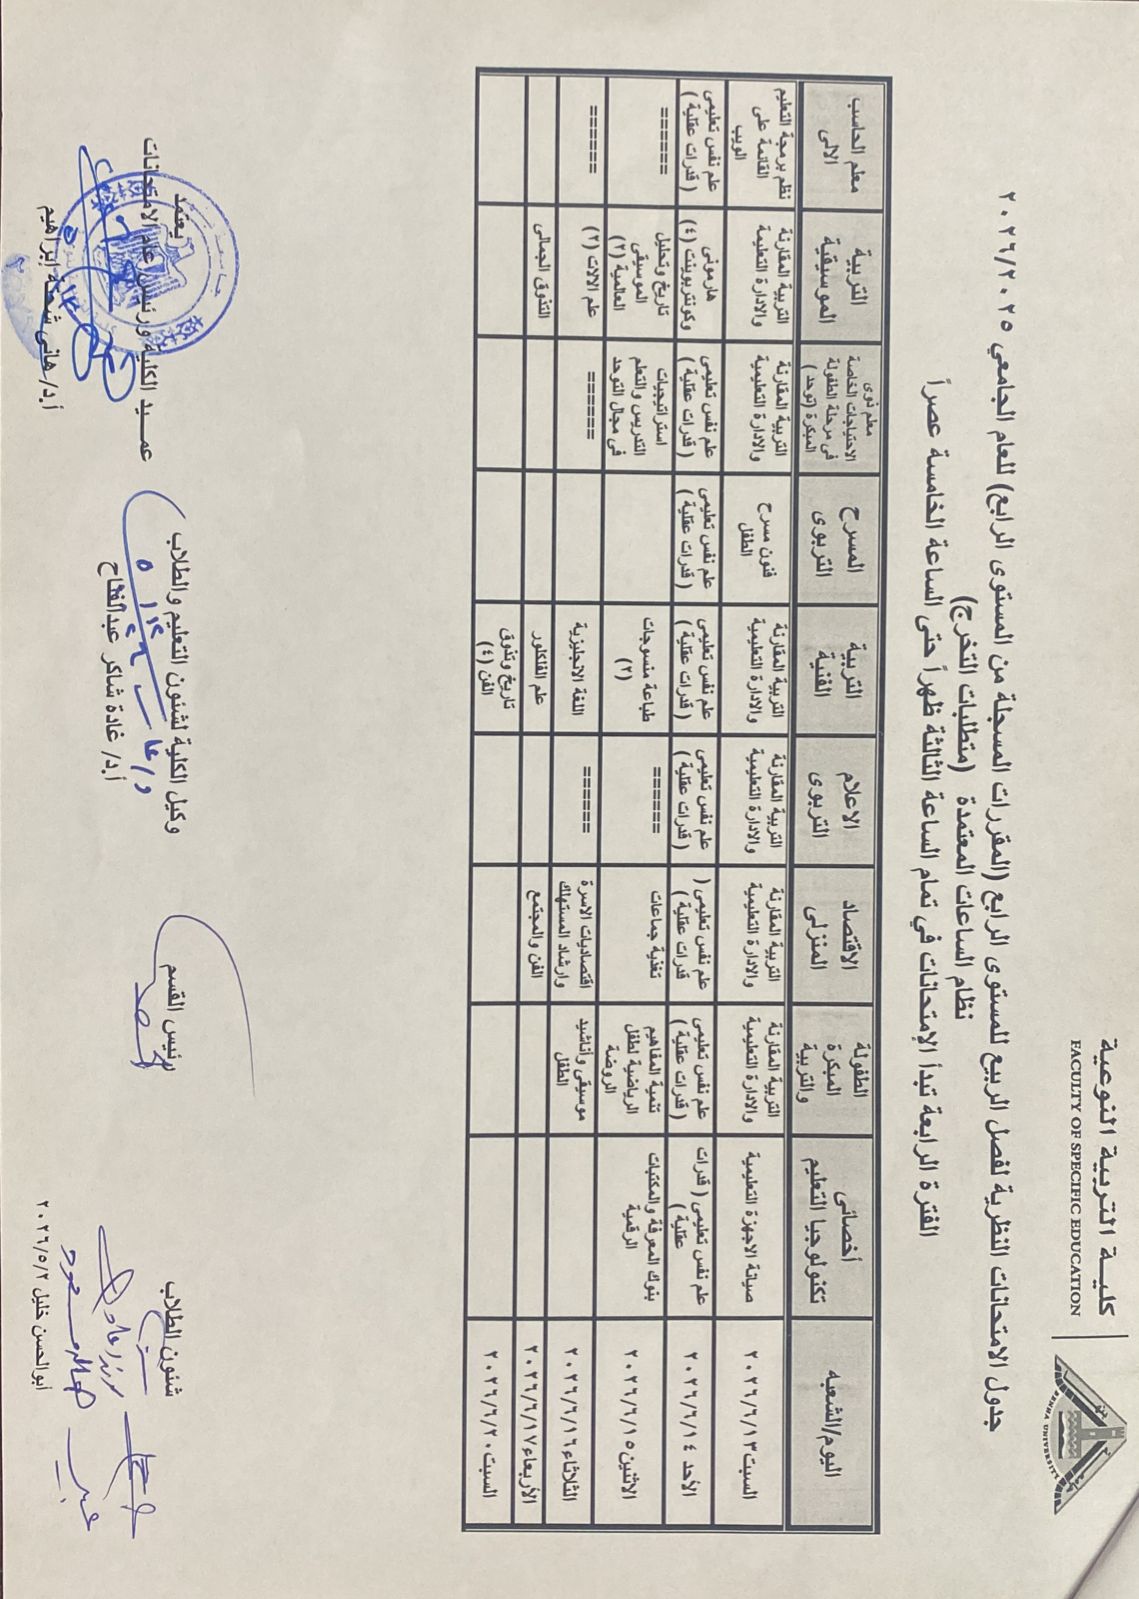 كليـــة التربية النوعية
FACULTY OF SPECIFIC EDUCATION
BENHA UNIVERSITY
جدول الامتحانات النظرية لفصل الربيع للمستوى الرابع (المقررات المسجلة من المستوى الرابع) للعام الجامعي ٢٠٢٦/٢٠٢٥
نظام الساعات المعتمدة (متطلبات التخرج)
الفترة الرابعة تبدأ الإمتحانات في تمام الساعة الثالثة ظهراً حتى الساعة الخامسة عصراً
اليوم/الشعبه
أخصائى
تكنولوجيا التعليم
الطفولة
المبكرة
والتربية
الاقتصاد
المنزلى
الاعلام
التربوى
التربية
الفنية
المسرح
التربوى
معلم ذوى
الاحتياجات الخاصة
فى مرحلة الطفولة
المبكرة (توحد)
التربية
الموسيقية
معلم الحاسب
الالى
السبت ٢٠٢٦/٦/١٣
صيانة الاجهزة التعليمية
التربية المقارنة
والادارة التعليمية
التربية المقارنة
والادارة التعليمية
التربية المقارنة
والادارة التعليمية
التربية المقارنة
والادارة التعليمية
فنون مسرح
الطفل
التربية المقارنة
والادارة التعليمية
التربية المقارنة
والادارة التعليمة
نظم برمجة التعليم
القائمة على
الويب
الأحد ٢٠٢٦/٦/١٤
علم نفس تعليمى ( قدرات
عقلية )
علم نفس تعليمى
( قدرات عقلية )
علم نفس تعليمى (
قدرات عقلية )
علم نفس تعليمى
( قدرات عقلية )
علم نفس تعليمى
( قدرات عقلية )
علم نفس تعليمى
( قدرات عقلية )
علم نفس تعليمى
( قدرات عقلية )
هارمونى
وكونتربوينت (٤)
علم نفس تعليمى
( قدرات عقلية )
الاثنين ٢٠٢٦/٦/١٥
بنوك المعرفة والمكتبات
الرقمية
تنمية المفاهيم
الرياضية لطفل
الروضة
تغذية جماعات
======
طباعة منسوجات
(٢)
استراتيجيات
التدريس والتعلم
فى مجال التوحد
تاريخ وتحليل
الموسيقى
العالمية (٢)
======
الثلاثاء ٢٠٢٦/٦/١٦
موسيقى وأناشيد
الطفل
اقتصاديات الاسرة
وارشاد المستهلك
======
اللغة الانجليزية
======
علم الالات (٢)
======
الأربعاء ٢٠٢٦/٦/١٧
الفن والمجتمع
علم الفلكلور
التذوق الجمالى
السبت ٢٠٢٦/٦/٢٠
تاريخ وتذوق
الفن (٤)
شئون الطلاب
أبوالحسن خليل ٢٠٢٦/٥/٢
رئيس القسم
وكيل الكلية لشئون التعليم والطلاب
أ.د/ غادة شاكر عبدالفتاح
يعتمد
عمـــيد الكلية ورئيس عام الامتحانات
أ.د/ هانى شحتة ابراهيم